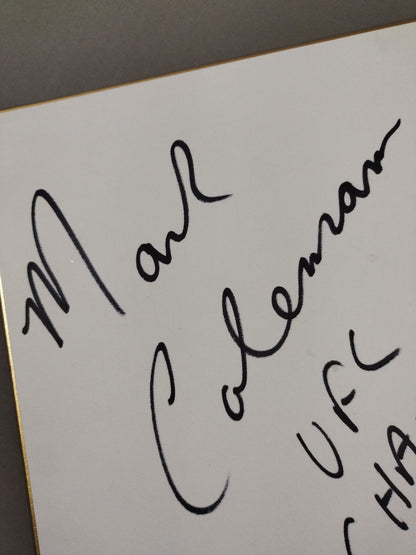 Mark
Coleman
UFC
CHA